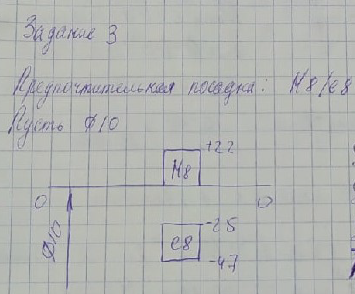 Задание 3
Предпочтительная посадка: H8/e8
Пусть ϕ10
+22
H8
0 0
-25
e8
-47
ϕ10